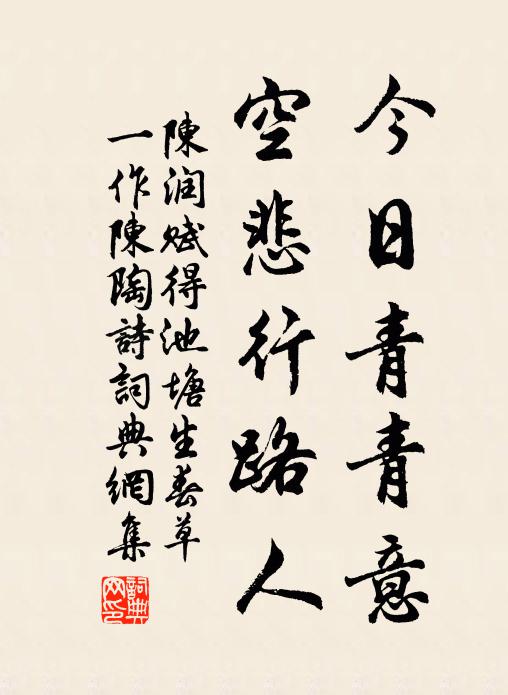 今日青青意
空悲行路人
陳润赋得池塘生春草
一作陳陶詩詞典網集
詞典
网印